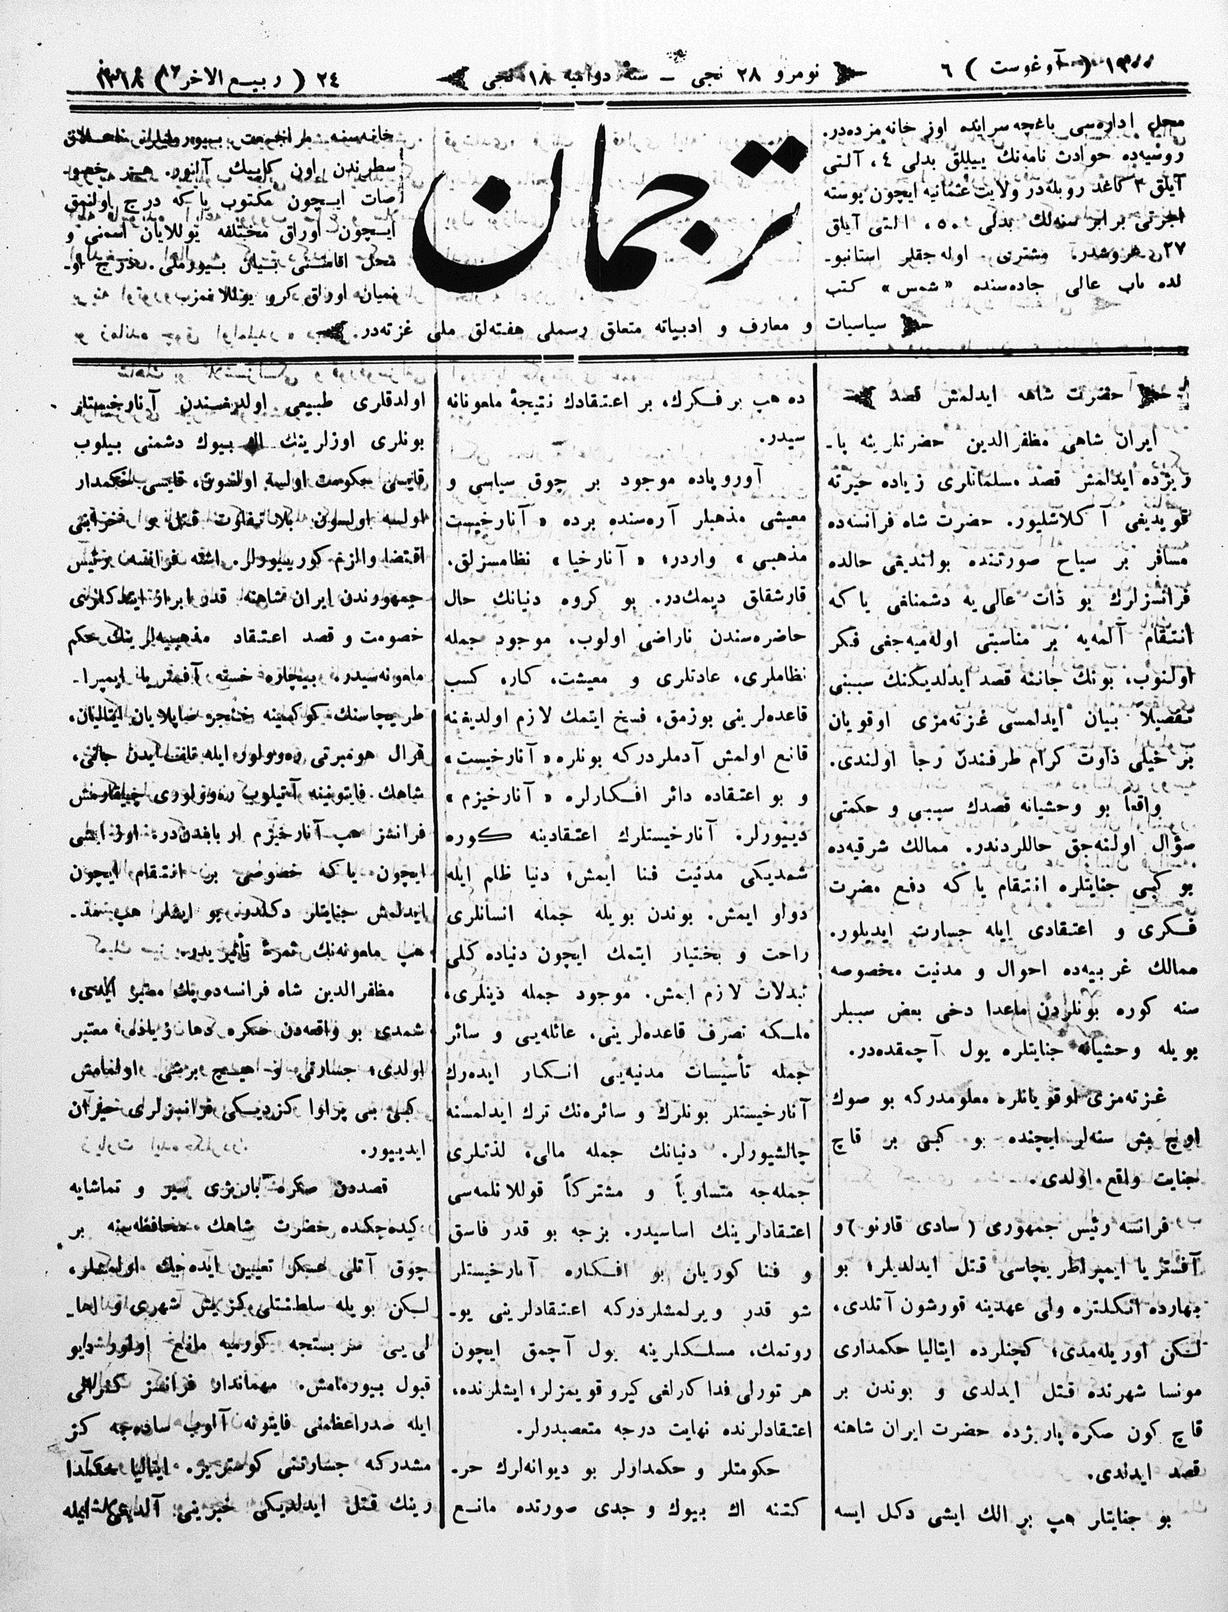 ٦ ( آوغوست ) ١٩٠٠
نومرو ٢٨ نجی – سنه دوامیه ١٨ نجی
٢٤ ( ربیع الاخر ) ١٣١٨
محل اداره‌سی باغچه سرایده اوز خانه مزده‌در.
روسیه‌ده حوادث نامه‌نك ییللق بدلی ٤، آلتی
آیلق ٣ كاغد روبله‌در ولایت عثمانیه ایچون پوسته
اجرتی برابر سنه‌لك بدلی ٥٠، آلتی آیلق
٢٧ غروشدر. مشتری اوله‌جقلر استانبو-
لده باب عالی جاده‌سنده «شمس» كتب
ترجمان
خانه‌سنه مراجعت بیورملیلر.
سطرندن اون كاپیك آلنور. هر خصو-
صات ایچون مكتوب یا كه درج اولنمق
ایچون اوراق مختلفه یوللایان اسمنی و
محل اقامتنی بیان بیورملی. درج او-
لنمیان اوراق كرو یوللانمز.
سیاسیات و معارف و ادبیاته متعلق رسملی هفته‌لق ملی غزته‌در.
حضرت شاهه ایدلمش قصد
ایران شاهی مظفرالدین حضرتلرینه پا-
ریژده ایدلمش قصد مسلمانلری زیاده حیرته
قویدیغی آكلاشلیور. حضرت شاه فرانسه‌ده
مسافر بر سیاح صورتنده بولندیغی حالده
فرانسزلرك بو ذات عالی‌یه دشمناغی یا كه
انتقام آلمه‌یه بر مناسبتی اوله‌میه‌جغی فكر
اولنوب، بونك جانه قصد ایدلدیكنك سببنی
تفصیلاً بیان ایدلمسی غزته‌مزی اوقویان
بر خیلی ذاوت كرام طرفندن رجا اولندی.
واقعاً بو وحشیانه قصدك سببی و حكمتی
سؤال اولنه‌جق حاللردندر. ممالك شرقیه‌ده
بو كبی جنایتلره انتقام یا كه دفع مضرت
فكری و اعتقادی ایله جسارت ایدیلور.
ممالك غربیه‌ده احوال و مدنیت مخصوصه
سنه كوره بونلردن ماعدا دخی بعض سببلر
بویله وحشیانه جنایتلره یول آچمقده‌در.
غزته‌مزی اوقویانلره معلومدركه بو صوك
اوچ بش سنه‌لر ایچنده بو كبی بر قاچ
جنایت واقع اولدی.
فرانسه رئیس جمهوری ( سادی قارنو ) و
آفستریا ایمپراطریچاسی قتل ایدلدیلر؛ بو
بهارده انكلتره ولی عهدینه قورشون آتلدی،
لكن اوریله‌مدی؛ كچنلرده ایتالیا حكمداری
مونسا شهرنده قتل ایدلدی و بوندن بر
قاچ كون صكره پاریژده حضرت ایران شاهنه
قصد ایدلدی.
بو جنایتلر هپ بر الك ایشی دكل ایسه
ده هپ بر فكرك، بر اعتقادك نتیجهٔ ملعونانه
سیدر.
آوروپاده موجود بر چوق سیاسی و
معیشی مذهبلر آره‌سنده برده «آنارخیست
مذهبی» واردر؛ «آنارخیا» نظامسزلق،
قارشقلق دیمك‌در. بو كروه دنیانك حال
حاضره‌سندن ناراضی اولوب، موجود جمله
نظاملری، عادتلری و معیشت، كار، كسب
قاعده‌لرینی بوزمق، فسخ ایتمك لازم اولدیغنه
قانع اولمش آدملردركه بونلره «آنارخیست»
و بو اعتقاده دائر افكارلره «آنارخیزم»
دییورلر. آنارخیستلرك اعتقادینه كوره
شمدیكی مدنیت فنا ایمش؛ دنیا ظلم ایله
دولو ایمش. بوندن بویله جمله انسانلری
راحت و بختیار ایتمك ایچون دنیاده كلی
تبدلات لازم ایمش. موجود جمله دینلری،
ملكه تصرف قاعده‌لرینی، عائله‌یی و سائر
جمله تأسیسات مدنیه‌یی انكار ایده‌رك
آنارخیستلر بونلرك و سائره‌نك ترك ایدلمسنه
چالشیورلر. دنیانك جمله مالی، لذتلری
جمله‌جه متساویاً و مشتركاً قوللانلمه‌سی
اعتقادلرینك اساسیدر. بزجه بو قدر فاسق
و فنا كوریان بو افكاره آنارخیستلر
شو قدر ویرلمشلردركه اعتقادلرینی یو-
روتمك، مسلكلرینه یول آچمق ایچون
هر تورلی فدا كارلغی كیرو قویمزلر؛ ایشلرنده،
اعتقادلرنده نهایت درجه متعصبدرلر.
حكومتلر و حكمدارلر بو دیوانه‌لرك حر-
كتنه اك بیوك و جدی صورتده مانع
اولدقلری طبیعی اولدیغندن آنارخیستلر
بونلری اوزلرینك اك بیوك دشمنی بیلوب
قایسی حكومت اولسه اولسون، قایسی حكمدار
اولسه اولسون بلا تفاوت قتل و خرابنی
اقتضا و الزم كورییورلر. اشته فرانسه رئیس
جمهورندن ایران شاهنه قدر ابراز ایتدكلری
خصومت و قصد اعتقاد مذهبیه‌لرینك حكم
ملعونه‌سیدر. بیچاره خسته آفستریا ایمپرا-
طریچاسنك كوكسینه خنجر صاپلایان ایتالیان،
قرال هومبرتی ره‌وولور ایله تلف ایدن جانی،
شاهك فایتونینه آتیلوب ره‌وولوری چیقارمش
فرانسز هپ آنارخیزم اربابندن‌در. اوز ایشی
ایچون یا كه خصوصی بر انتقام ایچون
ایدلمش جنایتلر دكلدر. بو ایشلر هپ مذ-
هب ملعونه‌نك ثمرهٔ تأثیریدر.
مظفرالدین شاه فرانسه‌ده پك معتبر ایدی؛
شمدی بو واقعه‌دن صكره دها زیاده معتبر
اولدی؛ جسارتی و هیچ برشی اولمامش
كبی بی پروا كزدیكی فرانسزلری حیران
ایدییور.
قصددن صكره پاریژی سیر و تماشایه
كیده‌جكده حضرت شاهك محافظه‌سنه بر
چوق آتلی عسكر تعیین ایده‌جك اولمشلر،
لكن بویله سلطنتلی كزیش شهری و اها-
لی‌یی سربستجه كورمیه مانع اولور دیو
قبول بیورمامش. مهماندار فرانسز كنرالی
ایله صدراعظمنی فایتونه آلوب ساده‌جه كز
مشدركه جسارتنی كوستریر. ایتالیا حكمدا
رینك قتل ایدلدیكی خبرینی آلدیغی ایله